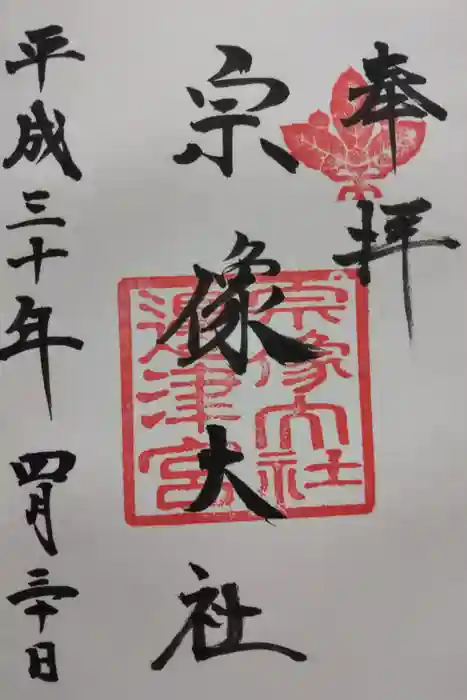 奉拝
宗像大社
宗像大社
邉津宮
平成三十年 四月三十日